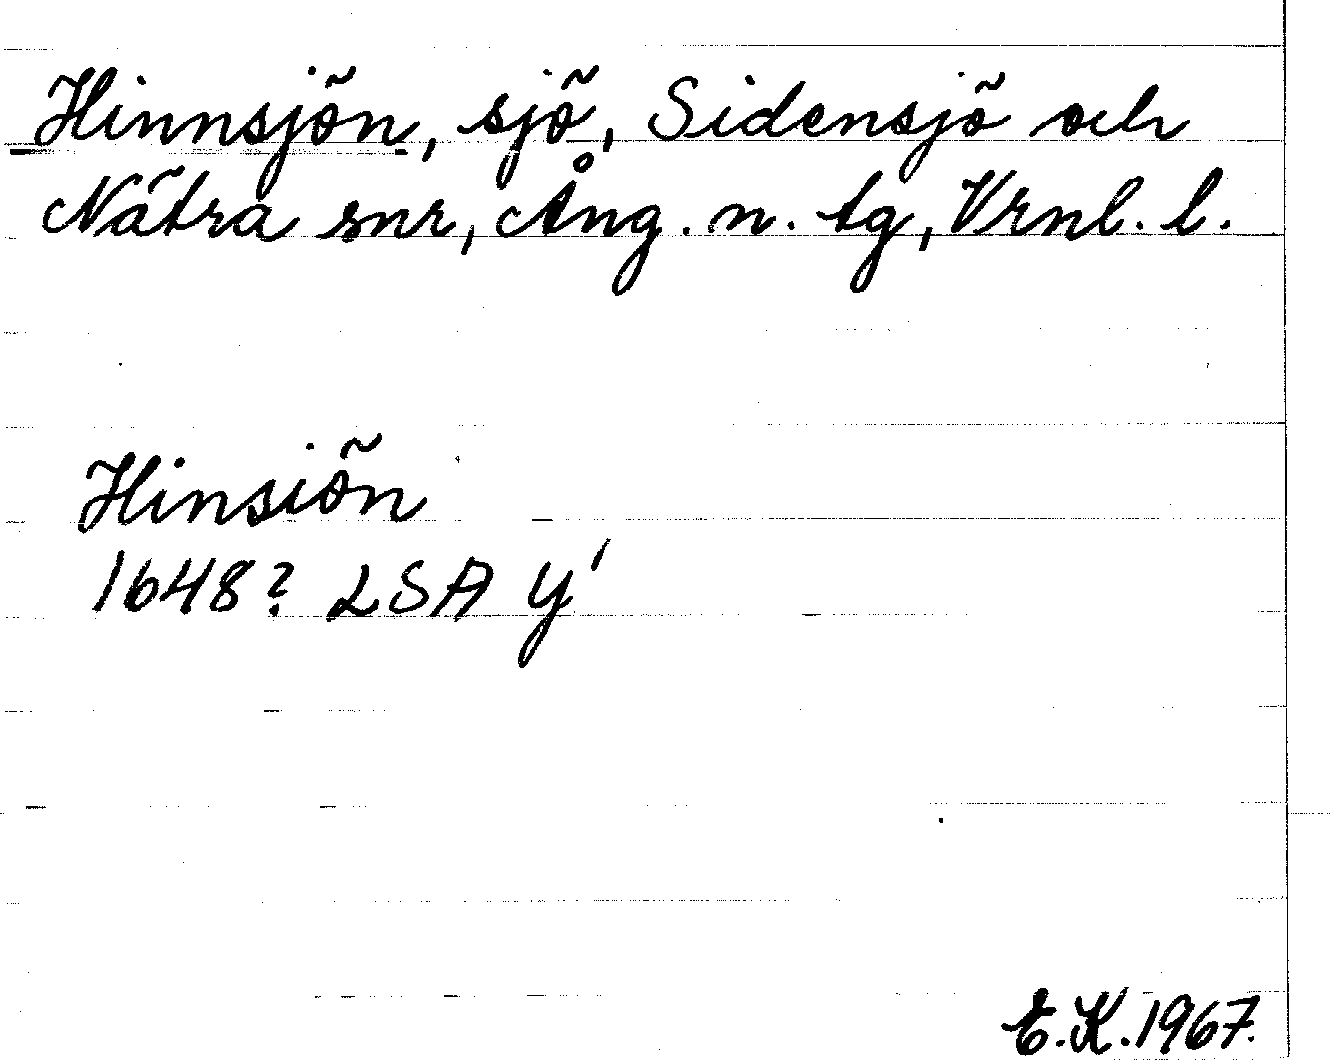 Hinnsjön, sjö, Sidensjö och
Nätra snr, Ång. n. tg, Vrnl. l.
Hinsiön
1648? LSA Y'
E.K. 1967.